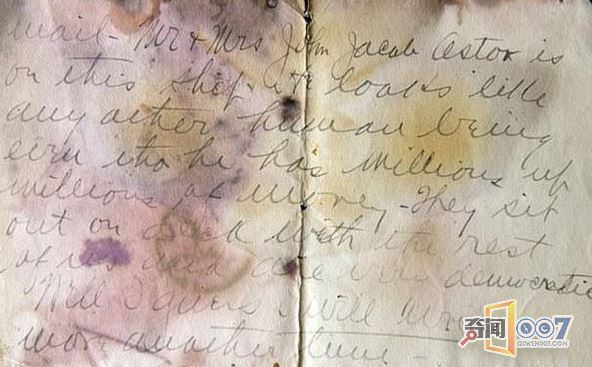 mail - Mr & Mrs John Jacob Astor is
on this ship. He looks like
any other human being
even tho he has millions up
millions of money - They sit
out on deck with the rest
of us and are very democratic
Well I guess I will
more another time -
奇闻007
QIWEN007.COM